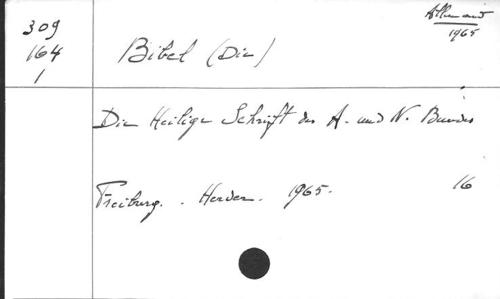 309
164
1
Allemand
1965
Bibel (Die)
Die Heilige Schrift des A. und N. Bundes
Freiburg. . Herder. 1965. 16